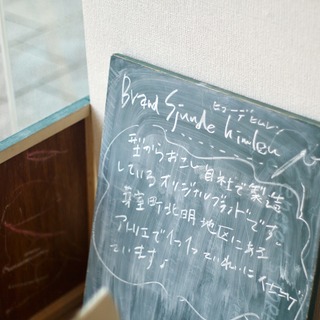 Brand
ヒューデ ヒムレン
型からおこし自社で製造
しているオリジナルブランドです。
芽室町北明地区にある
アトリエで1つ1つていねいに仕上げ
ています♪